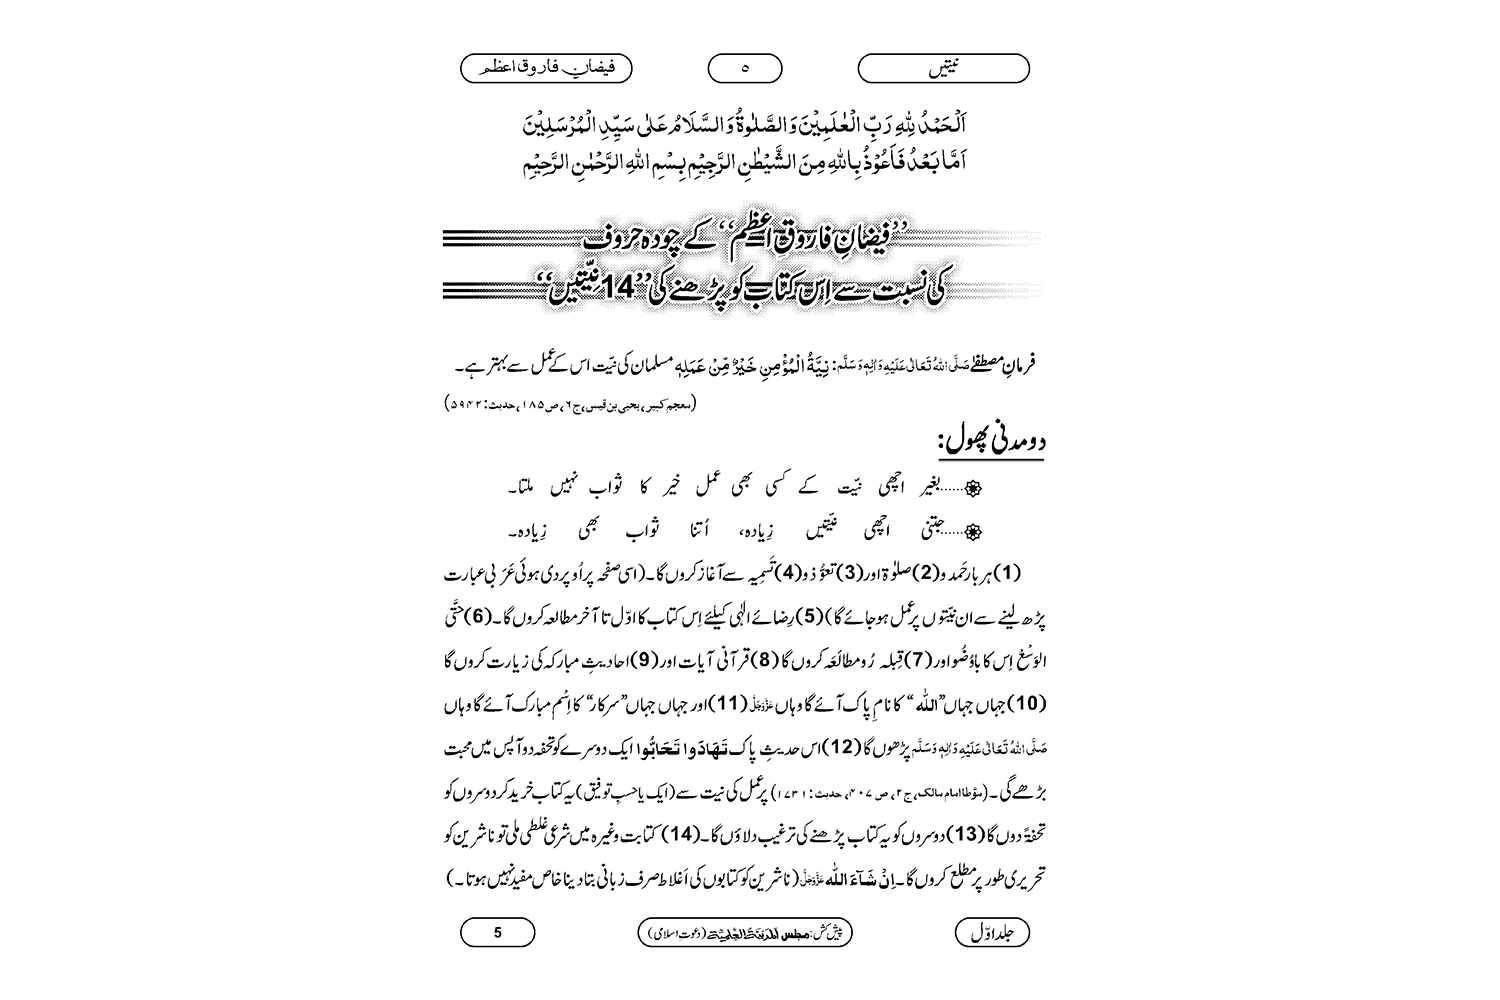 نیتیں
۵
فیضانِ فاروق اعظم
اَلْحَمْدُ لِلّٰهِ رَبِّ الْعٰلَمِیْنَ وَالصَّلٰوةُ وَالسَّلَامُ عَلٰی سَیِّدِ الْمُرْسَلِیْنَ
اَمَّا بَعْدُ فَاَعُوْذُ بِاللّٰهِ مِنَ الشَّیْطٰنِ الرَّجِیْمِ بِسْمِ اللّٰهِ الرَّحْمٰنِ الرَّحِیْمِ
’’فیضانِ فاروقِ اعظم‘‘ کے چودہ حروف
کی نسبت سے اِس کتاب کو پڑھنے کی ’’14 نیّتیں‘‘
فرمانِ مصطفےٰ صَلَّی اللّٰهُ تَعَالٰی عَلَیْهِ وَاٰلِهٖ وَسَلَّم: نِیَّةُ الْمُؤْمِنِ خَیْرٌ مِّنْ عَمَلِهٖ مسلمان کی نیّت اس کے عمل سے بہتر ہے۔
(معجم کبیر، یحیی بن قیس، ج۶، ص۱۸۵، حدیث: ۵۹۴۲)
دو مدنی پھول:
......بغیر اچھی نیّت کے کسی بھی عمل خیر کا ثواب نہیں ملتا۔
......جتنی اچھی نیّتیں زِیادہ، اُتنا ثواب بھی زِیادہ۔
(1) ہر بار حَمد و (2) صلوٰۃ اور (3) تعوُّذ و (4) تَسمِیہ سے آغاز کروں گا۔ (اسی صفحہ پر اُوپر دی ہوئی عَرَبی عبارت
پڑھ لینے سے ان نیّتوں پر عمل ہوجائے گا) (5) رِضائے الٰہی کیلئے اِس کتاب کا اوّل تا آخر مطالعہ کروں گا۔ (6) حتَّی
الوَسْعْ اِس کا باوُضُو اور (7) قِبلہ رُو مطالَعَہ کروں گا (8) قرآنی آیات اور (9) احادیثِ مبارکہ کی زیارت کروں گا
(10) جہاں جہاں ’’اللّٰه‘‘ کا نامِ پاک آئے گا وہاں عَزَّوَجَلَّ (11) اور جہاں جہاں ’’سرکار‘‘ کا اِسْم مبارک آئے گا وہاں
صَلَّی اللّٰهُ تَعَالٰی عَلَیْهِ وَاٰلِهٖ وَسَلَّم پڑھوں گا (12) اس حدیثِ پاک تَهَادَوا تَحَابُّوا ایک دوسرے کو تحفہ دو آپس میں محبت
بڑھے گی۔ (مؤطا امام مالک، ج۲، ص ۴۰۷، حدیث: ۱۷۳۱) پر عمل کی نیت سے (ایک یا حسبِ توفیق) یہ کتاب خرید کر دوسروں کو
تحفۃً دوں گا (13) دوسروں کو یہ کتاب پڑھنے کی ترغیب دلاؤں گا۔ (14) کتابت وغیرہ میں شرعی غلطی ملی تو ناشرین کو
تحریری طور پر مطلع کروں گا۔ اِنْ شَآءَ اللّٰه عَزَّوَجَلَّ (ناشرین کو کتابوں کی اَغلاط صرف زبانی بتادینا خاص مفید نہیں ہوتا۔)
جلد اوّل
پیش کش: مجلس المدینۃ العلمیۃ (دعوتِ اسلامی)
5